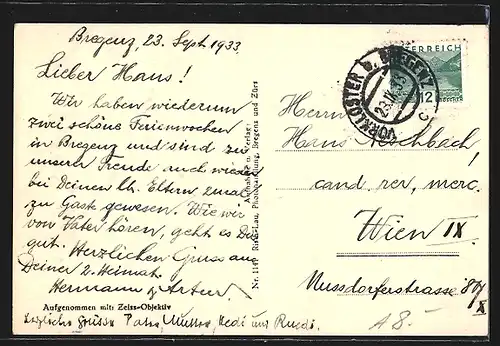 Bregenz, 23. Sept. 1933.
Lieber Hans!
Wir haben wiederum
zwei schöne Ferienwochen
in Bregenz und sind zu
unserer Freude auch wieder
bei Deinen lb. Eltern 2mal
zu Gaste gewesen. Wie wir
von Vater hören, geht es Dir
gut. Herzlichen Gruss aus
Deiner 2. Heimat.
Hermann Artur.
Aufgenommen mit Zeiss-Objektiv
Herzliche Grüsse Vater, Mutter, Hedi und Ruedi.
Aufnahme u. Verlag:
Photohandlung, Bregenz und Zürs
VORKLOSTER B. BREGENZ
23.IX.33
C
ÖSTERREICH
12 GROSCHEN
Herrn
Hans
cand. rer. merc.
Wien IX.
Nussdorferstrasse
A 8.-